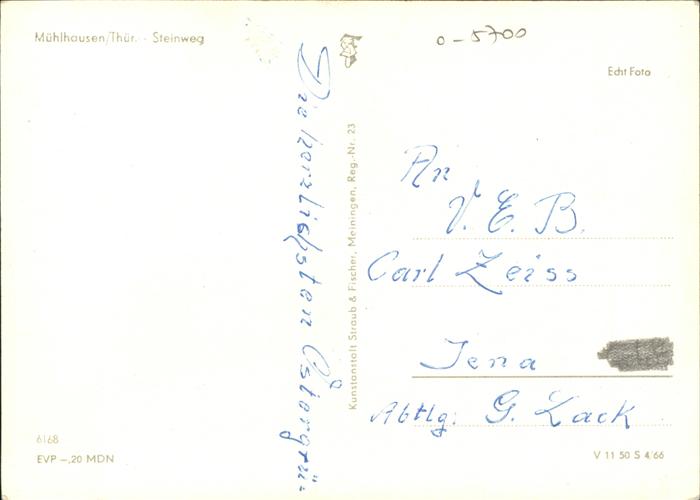 Mühlhausen/Thür. - Steinweg
o-5700
Echt Foto
Die herzlichsten Ostergrü-
Kunstanstalt Straub & Fischer, Meiningen, Reg.-Nr. 23
An
V. E. B.
Carl Zeiss
Jena
Abtlg: G. Lack
6168
EVP -,20 MDN
V 11 50 S 4/66